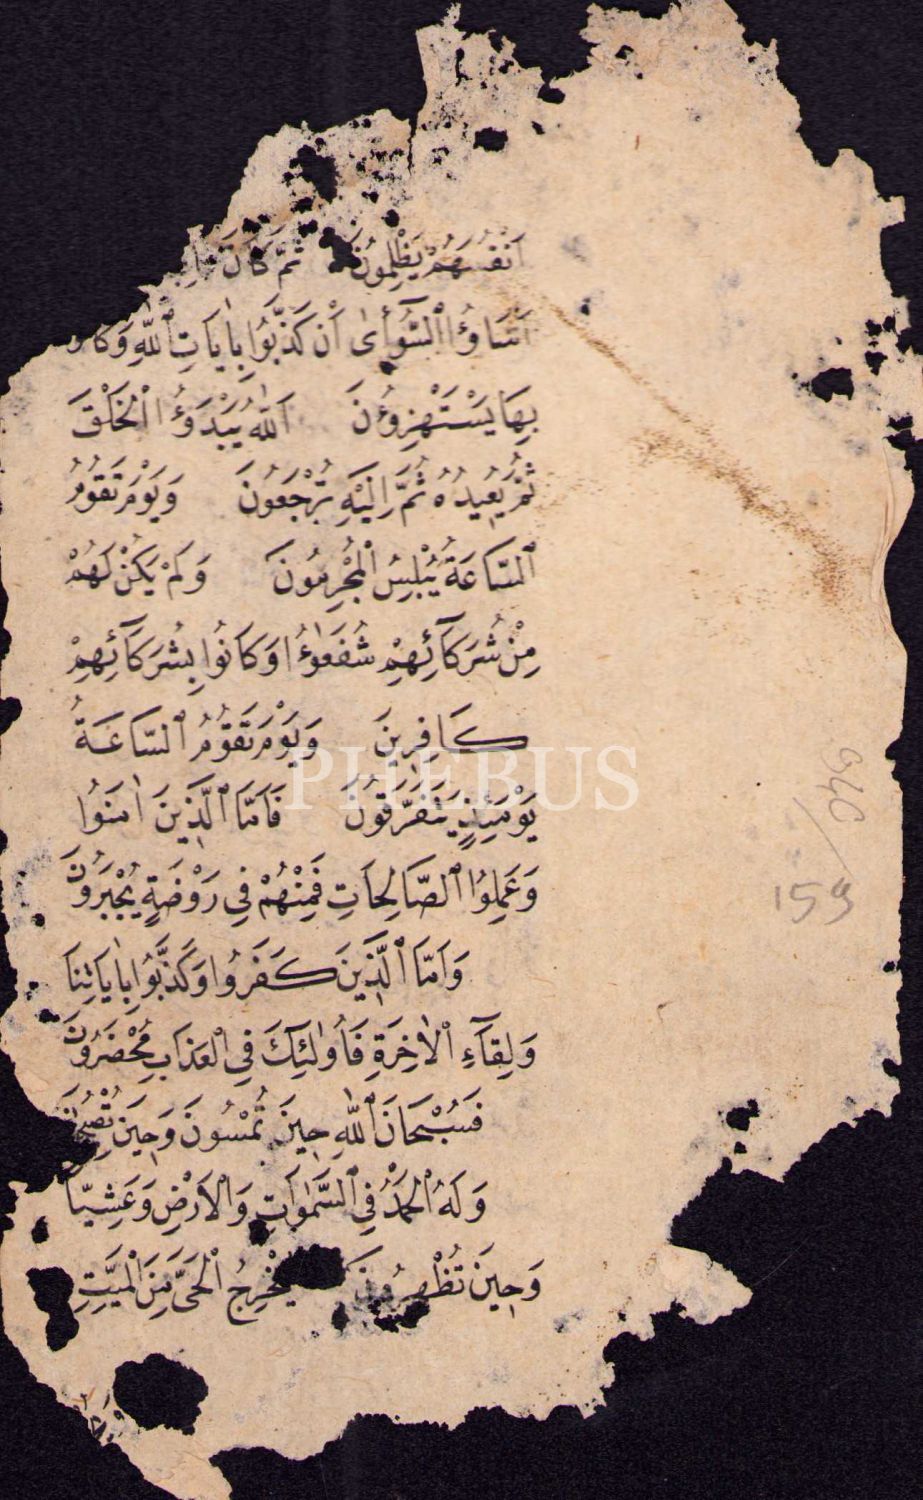 اَنْفُسَهُمْ يَظْلِمُونَ ثُمَّ كَانَ
اَسَاؤُا ٱلسُّوأٰى اَنْ كَذَّبُوا بِاٰيَاتِ ٱللّٰهِ وَكَانُوا
بِهَا يَسْتَهْزِؤُنَ اَللّٰهُ يَبْدَؤُا ٱلْخَلْقَ
ثُمَّ يُعِيدُهُ ثُمَّ اِلَيْهِ تُرْجَعُونَ وَيَوْمَ تَقُومُ
ٱلسَّاعَةُ يُبْلِسُ ٱلْمُجْرِمُونَ وَلَمْ يَكُنْ لَهُمْ
مِنْ شُرَكَآئِهِمْ شُفَعٰؤُا وَكَانُوا بِشُرَكَآئِهِمْ
كَافِرِينَ وَيَوْمَ تَقُومُ ٱلسَّاعَةُ
يَوْمَئِذٍ يَتَفَرَّقُونَ فَاَمَّا ٱلَّذِينَ اٰمَنُوا
وَعَمِلُوا ٱلصَّالِحَاتِ فَمِنْهُمْ فِى رَوْضَةٍ يُحْبَرُونَ
وَاَمَّا ٱلَّذِينَ كَفَرُوا وَكَذَّبُوا بِاٰيَاتِنَا
وَلِقَآءِ ٱلْاٰخِرَةِ فَاُولٰئِكَ فِى ٱلْعَذَابِ مُحْضَرُونَ
فَسُبْحَانَ ٱللّٰهِ حِينَ تُمْسُونَ وَحِينَ تُصْبِحُونَ
وَلَهُ ٱلْحَمْدُ فِى ٱلسَّمٰوَاتِ وَٱلْاَرْضِ وَعَشِيًّا
وَحِينَ تُظْهِرُونَ يُخْرِجُ ٱلْحَىَّ مِنَ ٱلْمَيِّتِ
PHEBUS
159